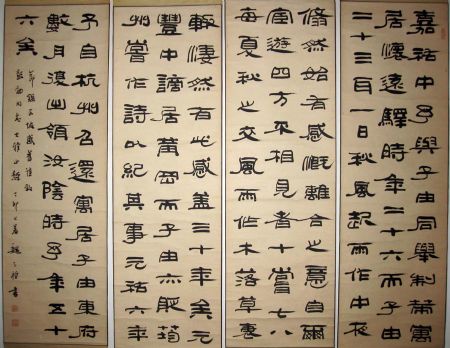 嘉祐中予與子由同舉制策寓
居懷遠驛時年二十六而子由
二十三耳一日秋風起雨作中夜
翛然始有感慨離合之意自爾
宦遊四方不相見者十嘗七八
每夏秋之交風雨作木落草衰
輒淒然有此感蓋三十年矣元
豐中謫居黃岡而子由亦貶筠
州嘗作詩以紀其事元祐六年
予自杭州召還寓居子由東府
數月復出領汝陰時予年五十
六矣
節錄東坡感舊詩敘
丁卯之春 書